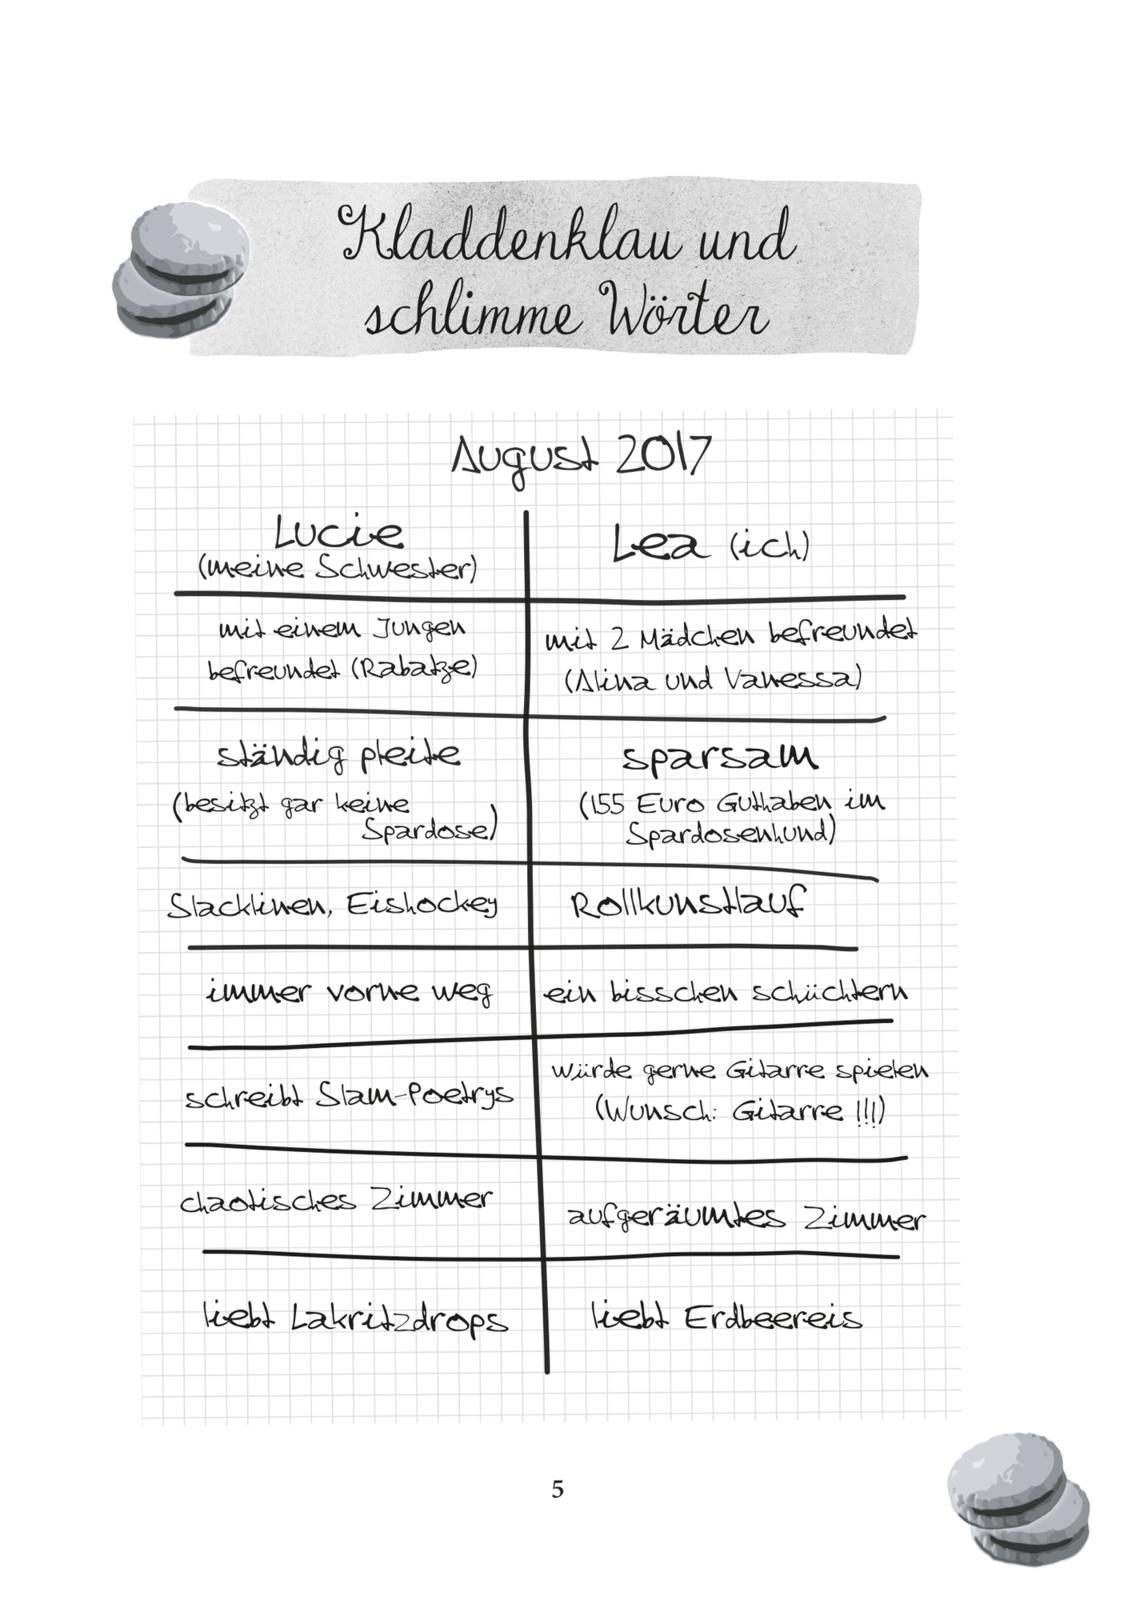 Kladdenklau und
schlimme Wörter
August 2017
Lucie
(meine Schwester)
Lea (ich)
mit einem Jungen
befreundet (Rabatze)
mit 2 Mädchen befreundet
(Alina und Vanessa)
ständig pleite
(besitzt gar keine
Spardose)
sparsam
(155 Euro Guthaben im
Spardosenhund)
Slacklinen, Eishockey
Rollkunstlauf
immer vorne weg
ein bisschen schüchtern
schreibt Slam-Poetrys
würde gerne Gitarre spielen
(Wunsch: Gitarre !!!)
chaotisches Zimmer
aufgeräumtes Zimmer
liebt Lakritzdrops
liebt Erdbeereis
5